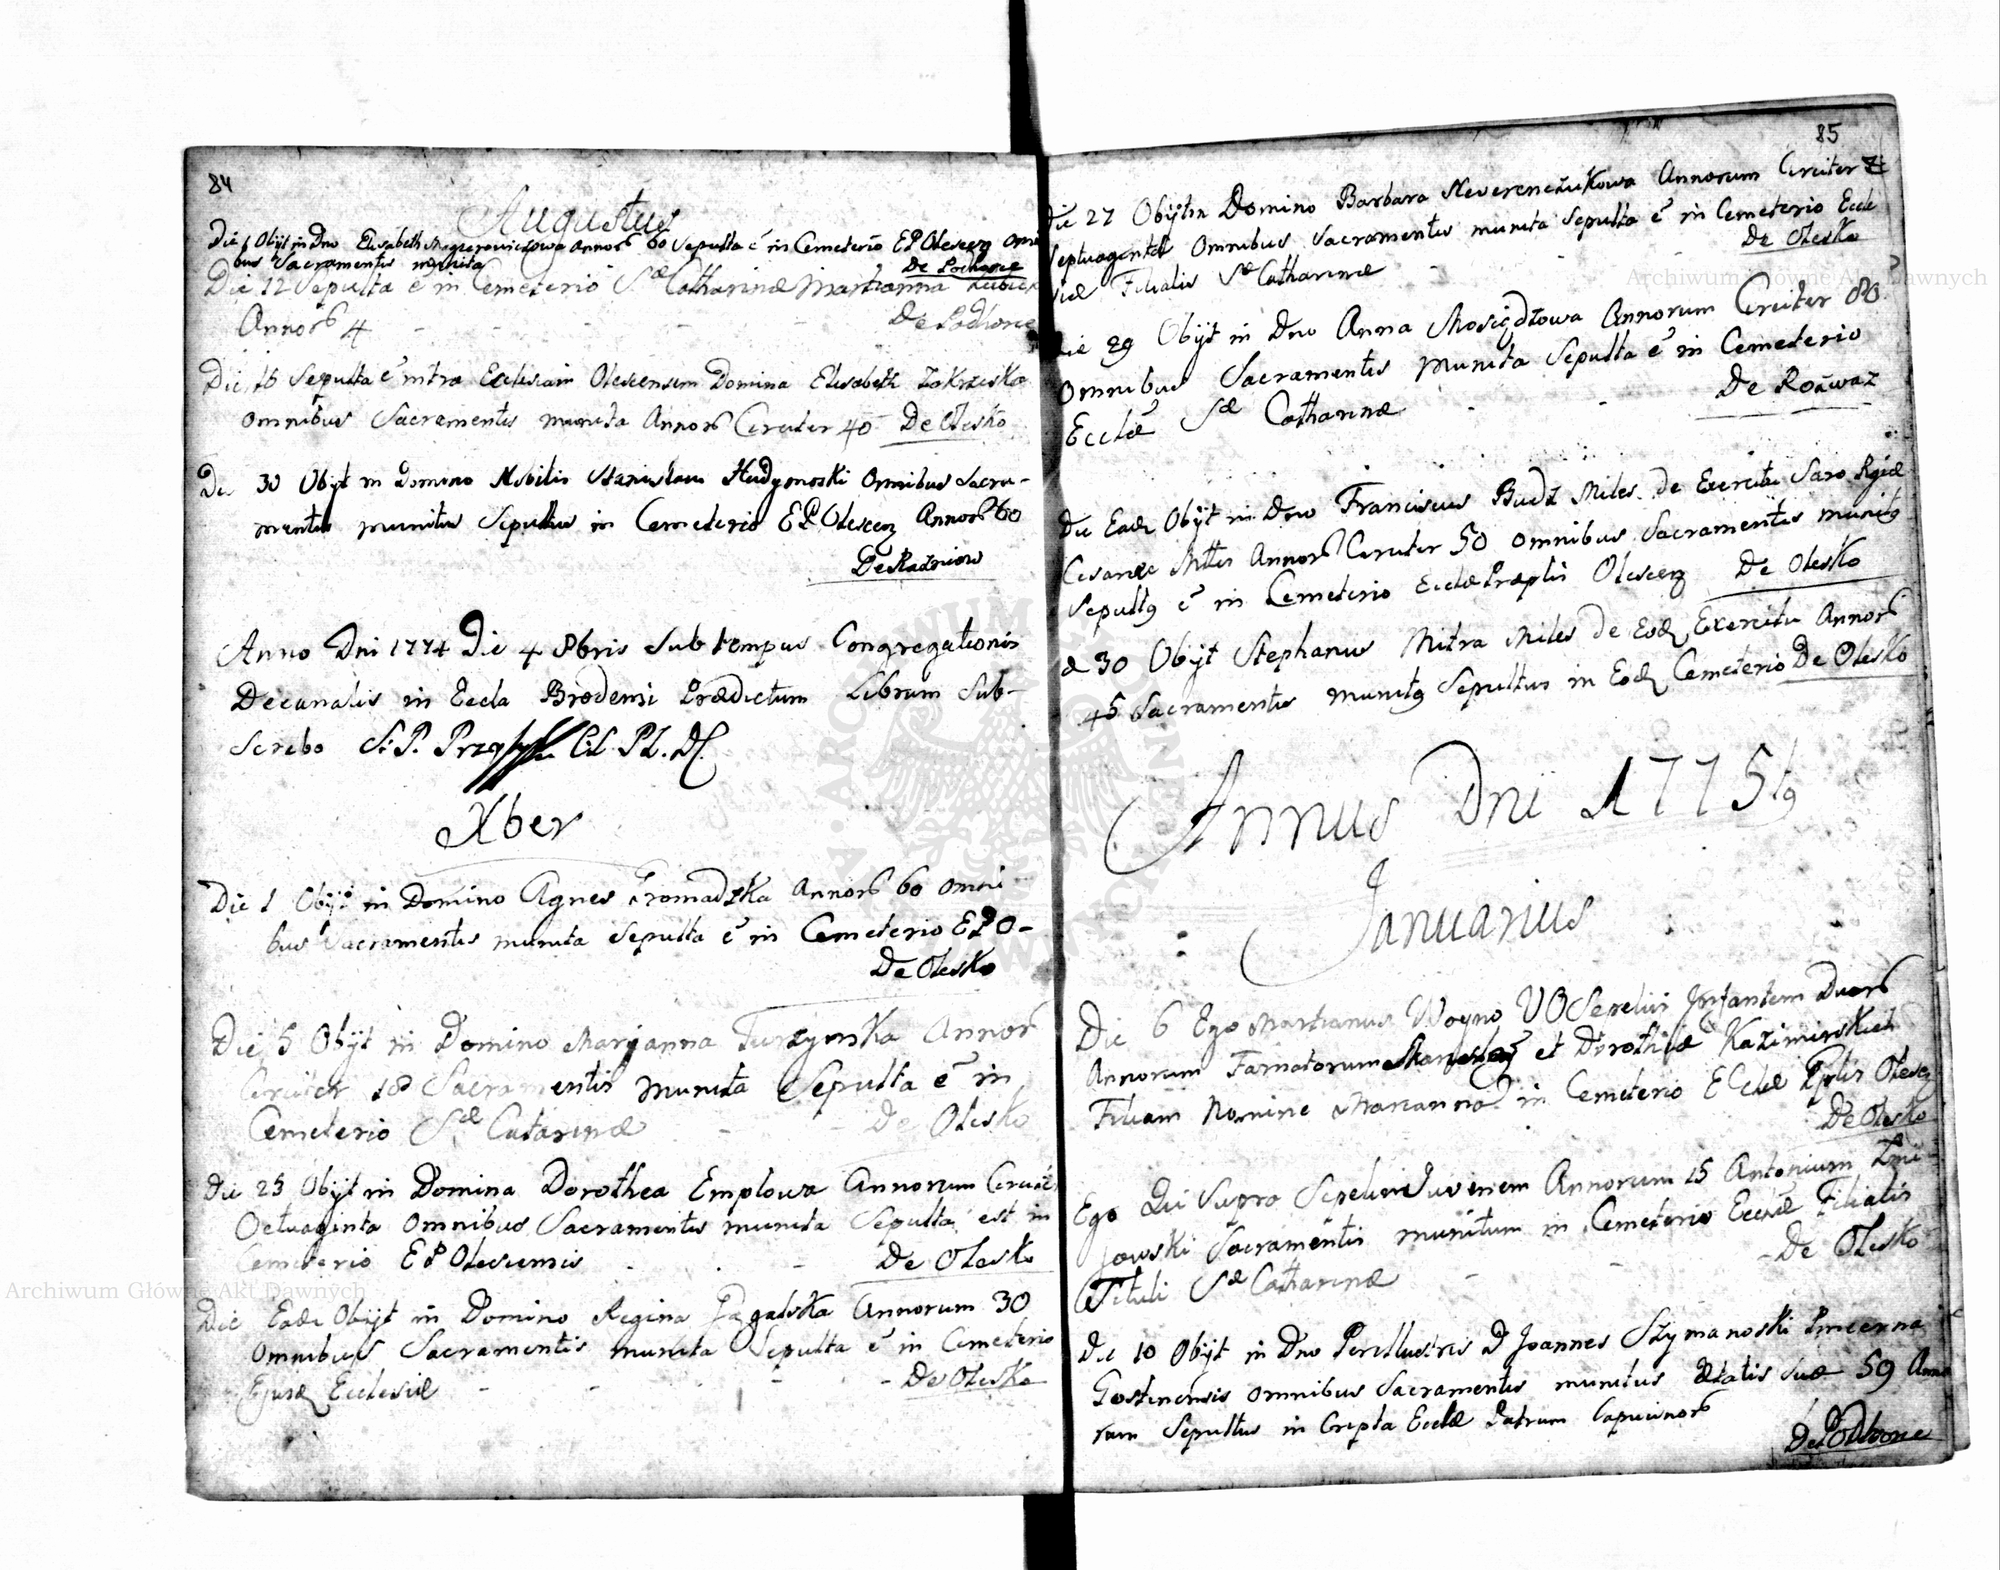 84
Augustus
Die 1 Obijt in Dno Elisabeth Annorũ 60 Sepulta ẽ in Cemeterio EP Olescen Omni
bus Sacramentis munita
De Podhorce
Die 12 Sepulta ẽ in Cemeterio Sæ Catharinæ Martianna
Annorũ 4 - - - - De Podhorce
Die 15 Sepulta ẽ intra Ecclesiam Olescensem Domina Elisabeth Zakrzeska
Omnibus Sacramentis munita Annorũ Circiter 40 De Olesko
Die 30 Obijt in Domino Nobilis Stanislaus Hudymoski Omnibus Sacra-
mentis munitus Sepultus in Cemeterio EP Olescen Annorũ 60
De Razniow
Anno Dni 1774 Die 4 Xbris Sub tempus Congregationis
Decanalis in Eccla Brodensi Prædictum Librum Sub-
scribo
Xber
Die 1 Obijt in Domino Agnes Gromadzka Annorũ 60 omni
bus Sacramentis munita Sepulta ẽ in Cemeterio EPO-
De Olesko
Die 5 Obijt in Domino Maryanna Turzynska Annorũ
Circiter 18 Sacramentis munita Sepulta ẽ in
Cemeterio Sæ Catarinæ - - De Olesko
Die 25 Obijt in Domina Dorothea Emplowa Annorum Circiter
Octuaginta omnibus Sacramentis munita Sepulta est in
Cemeterio EP Olescensis - - De Olesko
Die Eadē Obijt in Domino Regina Annorum 30
Omnibus Sacramentis munita Sepulta ẽ in Cemeterio
Ejusdē Ecclesiæ - - - - De Olesko
85
Die 27 Obijt in Domino Barbara Annorum Circiter
Septuaginta Omnibus Sacramentis munita Sepulta ẽ in Cemeterio Eccle
siæ Filialis Sæ Catharinæ - - De Olesko
Die 29 Obijt in Dno Anna Annorum Circiter 80
Omnibus Sacramentis Munita Sepulta ẽ in Cemeterio
Ecclæ Sæ Catharinæ - - De
Die Eadē Obijt in Dno Franciscus Budz Miles de Exercitu Saro Regiæ
Cesareæ Mttis Annorũ Circiter 50 omnibus Sacramentis munitus
Sepultus ẽ in Cemeterio Ecclæ Præptis Olescen De Olesko
30 Obijt Stephanus Mitra Miles de Eodē Exercitu Annorũ
45 Sacramentis munitus Sepultus in Eodē Cemeterio De Olesko
Annus Dni 1775tus
Januarius
Die 6 Ego Martianus Woyno VO Sepelivi Infantem Duorũ
Annorum Famatorum et Dorothæ Kazimirskich
Filiam Nomine Mariannã in Cemeterio Ecclæ Pptis Olescen
De Olesko
Ego Qui Supro Sepelivi Juvenem Annorum 15 Antonium Zmi-
jowski Sacramentis munitum in Cemeterio Ecclæ Filialis
Tituli Sæ Catharinæ - - De Olesko
Die 10 Obijt in Dno Perillustris D Joannes Szymanoski Pincerna
Gostinensis omnibus Sacramentis munitus Ætatis suæ 59 Anno
rum Sepultus in Cripta Ecclæ Patrum Capucinorũ
De Podhorce
Archiwum Główne Akt Dawnych
Archiwum Główne Akt Dawnych